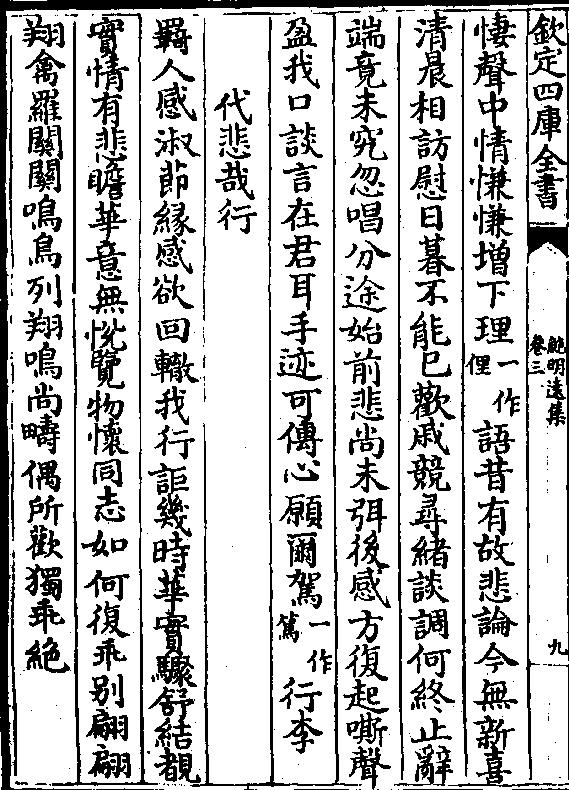 欽定四庫全書
鮑明遠集
卷三
九
悽聲中情慊慊增下理一作俚語昔有故悲論今無新喜
清晨相訪慰日暮不能已歡戚競尋緒談調何終止辭
端竟未究忽唱分途始前悲尚未弭後感方復起嘶聲
盈我口談言在君耳手迹可傳心願爾駕一作篤行李
代悲哉行
羇人感淑節緣感欲回轍我行詎幾時華實驟舒結覩
實情有悲瞻華意無恱覽物懷同志如何復乖别翩翩
翔禽羅關關鳴鳥列翔鳴尚疇偶所歡獨乖絶